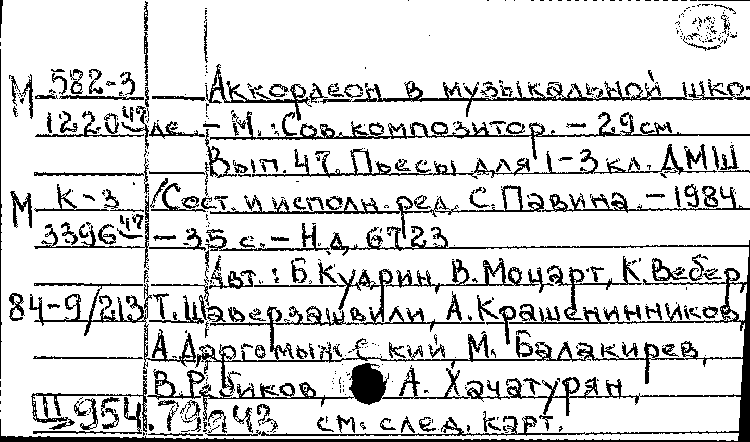 М 582-3 Аккордеон в музыкальной шко-
1220 47 ле. - М.: Сов. композитор. - 29см.
Вып. 47. Пьесы для 1-3 кл. ДМШ
М К-3 /Сост. и исполн. ред. С. Павина. - 1984
3396 47 - 35 с. - Н.д. 6723
Авт.: Б. Кудрин, В. Моцарт, К. Вебер,
84-9/213 Т. Шаверзашвили, А. Крашенинников,
А. Даргомыжский, М. Балакирев,
В. Ребиков, А. Хачатурян,
III 954.79я43 см. след. карт.